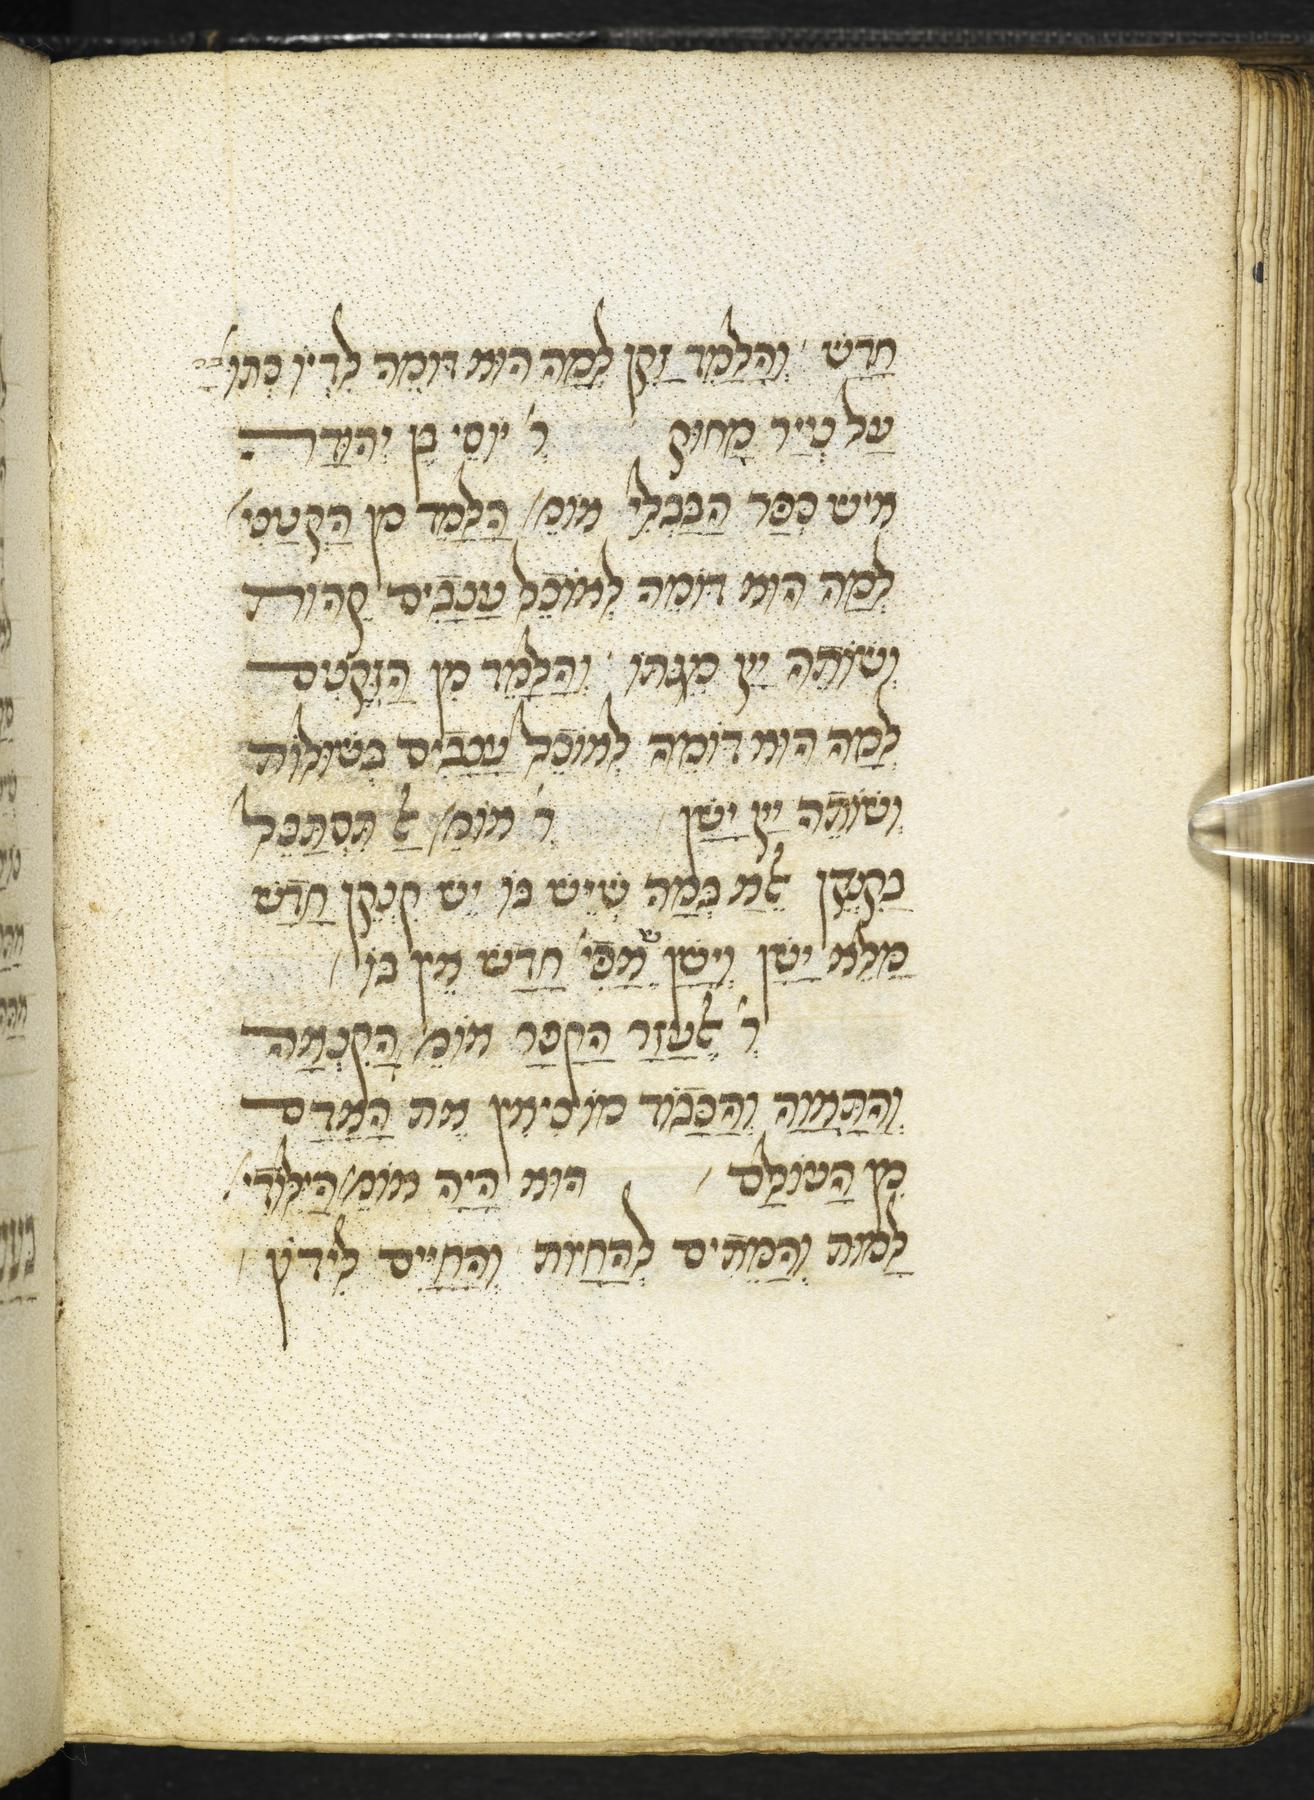 חָדָשׁ ׳ וְהַלָּמֵד זָקֵן לְמָה הוּא דּוֹמֶה לִדְיוֹ כְתוּ
עַל נְיָיר מָחוּק ר׳ יוֹסֵי בֶן יְהוּדָה
איש כְּפַר הַבַּבְלִי אומֵ׳ הַלָּמֵד מן הַקְּטַנִּי׳
לְמָה הוּא דּוֹמֶה לְאוֹכֵל עֲנָבִים קֵהוֹת
וְשׁוֹתֶה יַיִן מִגִּתּוֹ ׳ וְהַלָּמֵד מִן הַזְּקֵנִים
לְמָה הוּא דּוֹמֶה לְאוֹכֵל עֲנָבִים בְּשׁוּלוֹת
וְשׁוֹתֶה יַיִן יָשָׁן ר׳ אוֹמֵ׳ אַל תִּסְתַּכֵּל
בַּקַּנְקַן אֶלָּא בְּמַה שֶּׁיֵּשׁ בּוֹ יֵשׁ קַנְקַן חָדָשׁ
מָלֵא יָשָׁן וְיָשָׁן שֶׁאֲפִי׳ חָדָשׁ אֵין בּוֹ ׳
ר׳ אֶלְעָזָר הַקַּפָּר אוֹמֵ׳ הַקִּנְאָה
וְהַתַּאֲוָה וְהַכָּבוֹד מוֹצִיאִין אֶת הָאָדָם
מִן הָעוֹלָם ׳ הוּא הָיָה אוֹמֵ׳ הַיִּלּוֹדִי׳
לָמוּת וְהַמֵּתִים לְהֵחָיוֹת וְהַחַיִּים לִידּוֹן ׳